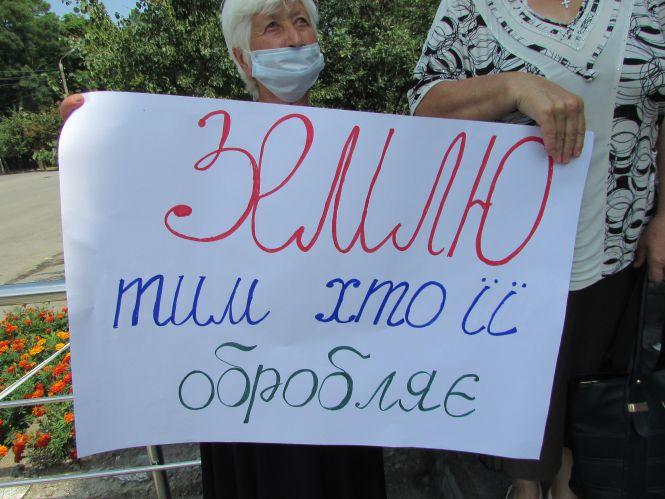 Землю
тим хто її
обробляє